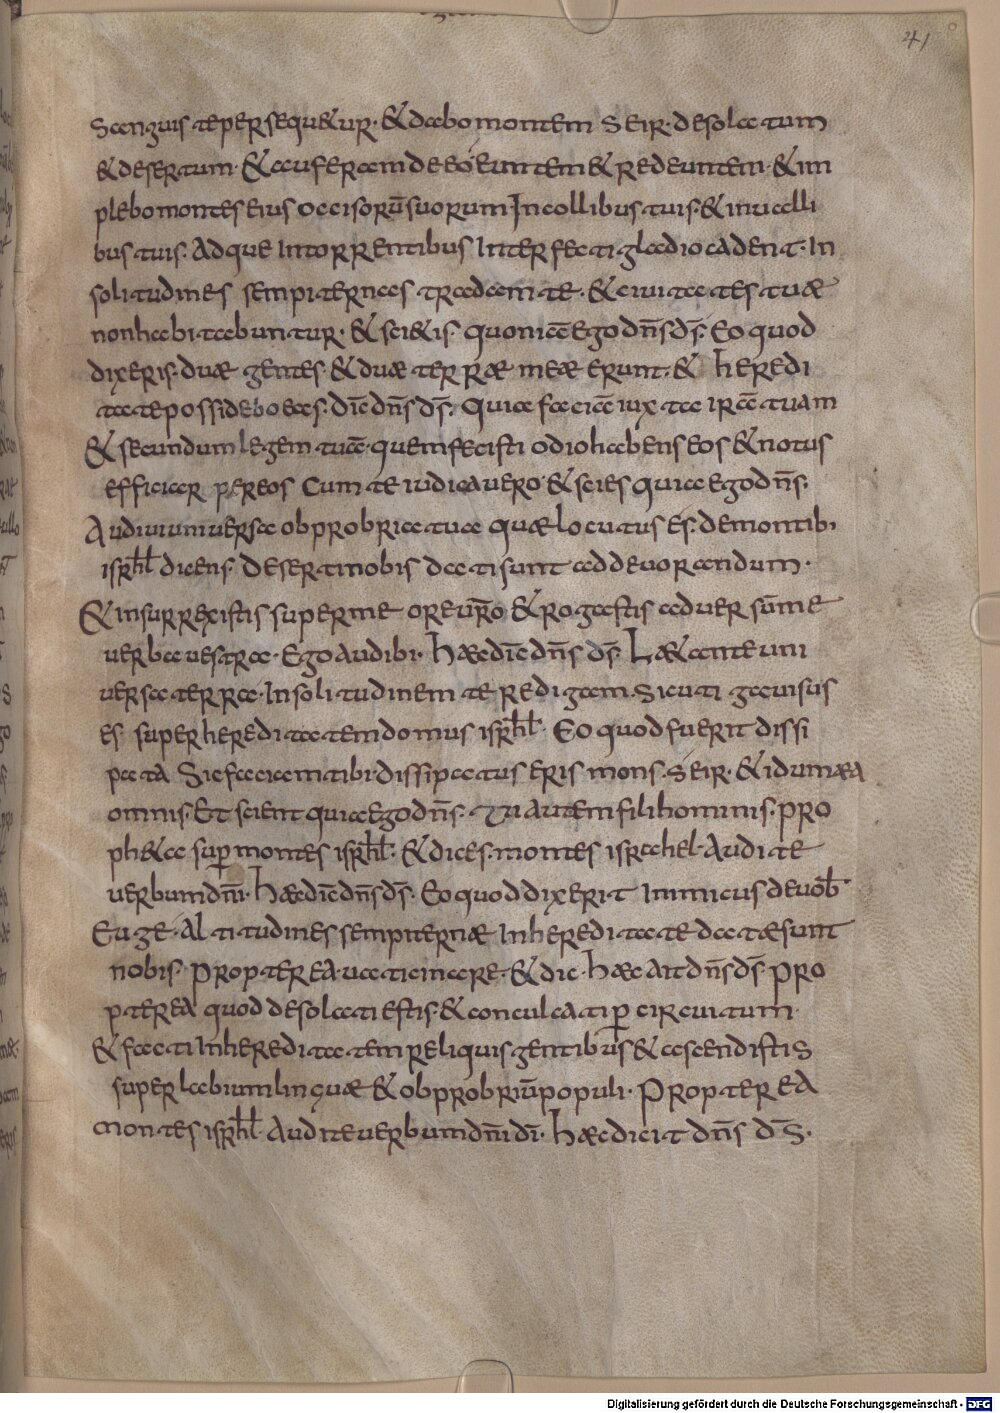 41
sanguis te persequ&ur· & dabo montem Seir· desolatum
& desertum· & auferam de eo euntem & redeuntem· & im
plebo montes eius occisorū suorum In collibus tuis· & in ualli
bus tuis· Adque In torrentibus Interfecti gladio cadent· In
solitudines sempiternas tradam te· & ciuitates tuæ
non habitabuntur· & sci&is· quoniā Ego dn̄s ds̄· Eo quod
dixeris· duæ gentes· & duæ terræ meæ erunt· & heredi
tate possidebo eas· dic̄ dn̄s ds̄· Quia faciā iuxta irā tuam
& secundum legem tuā· quem fecisti odio habens eos & notus
efficiar per eos Cum te iudicauero· & scies quia ego dn̄s·
Audiui uniuersa obprobria tua quæ locutus es· de montibi
isrl̄ dicens· deserti nobis dati sunt ad deuorandum·
& insurrexistis super me ore ur̄o & rogastis aduersū me
uerba uestra· Ego audibi· hæc dic̄ dn̄s ds̄· Læ&ante uni
uersa terra· In solitudinem te redigam· sicuti gauisus
es· super hereditatem domus isrl̄· Eo quod fuerit dissi
pata Sic faciam tibi· dissipatus eris mons· Seir· & idumæa
omnis· Et scient quia ego dn̄s· Tu autem fili hominis· pro
ph&a sup̄ montes isrl̄· & dices· montes israhel· Audite
uerbum dn̄i· hæc dic̄ dn̄s ds̄· Eo quod dixerit Inimicus de uob̄·
Euge· Altitudines sempiternæ In hereditate datæ sunt
nobis· propterea· uaticinare· & dic· hæc ait dn̄s ds̄· pro
pterea quod desolati estis· & conculcati p̄ circuitum·
& facti In hereditatem reliquis gentibus & ascendistis
super labium linguæ & obprobriū populi· Propterea
montes isrl̄· Audite uerbum dn̄i dī· hæc dicit dn̄s ds̄·
Digitalisierung gefördert durch die Deutsche Forschungsgemeinschaft - DFG